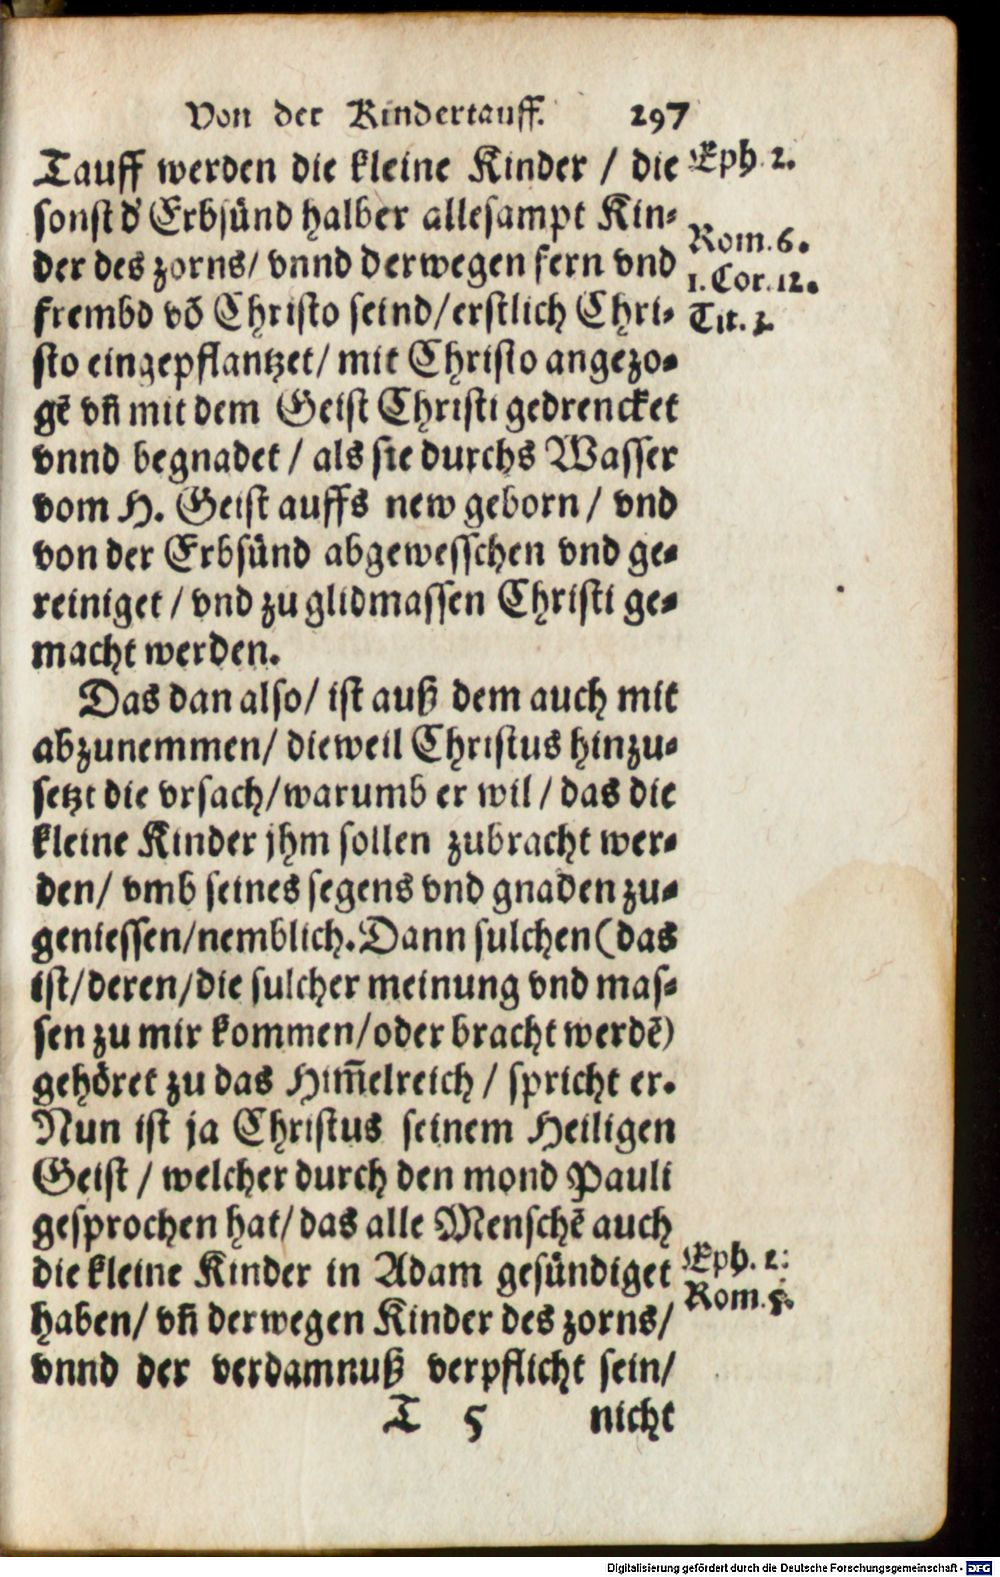 Von der Kindertauff. 297
Tauff werden die kleine Kinder / die
Eph. 2.
sonst d' Erbsünd halber allesampt Kin⸗
Rom. 6.
der des zorns/ vnnd derwegen fern vnd
1. Cor. 12.
frembd võ Christo seind/erstlich Chri⸗
Tit. 3.
sto eingepflantzet/ mit Christo angezo⸗
gẽ vñ mit dem Geist Christi gedrencket
vnnd begnadet / als sie durchs Wasser
vom H. Geist auffs new geborn / vnd
von der Erbsünd abgewesschen vnd ge⸗
reiniget / vnd zu glidmassen Christi ge⸗
macht werden.
Das dan also/ ist auß dem auch mit
abzunemmen/ dieweil Christus hinzu⸗
setzt die vrsach/warumb er wil / das die
kleine Kinder jhm sollen zubracht wer⸗
den/ vmb seines segens vnd gnaden zu⸗
geniessen/nemblich. Dann sulchen (das
ist/deren/die sulcher meinung vnd mas⸗
sen zu mir kommen/oder bracht werdẽ)
gehöret zu das Him̃elreich / spricht er.
Nun ist ja Christus seinem Heiligen
Geist / welcher durch den mond Pauli
gesprochen hat/ das alle Menschẽ auch
die kleine Kinder in Adam gesündiget
Eph. 2.
haben/ vñ derwegen Kinder des zorns/
Rom. 5.
vnnd der verdamnuß verpflicht sein/
T 5 nicht
Digitalisierung gefördert durch die Deutsche Forschungsgemeinschaft - DFG